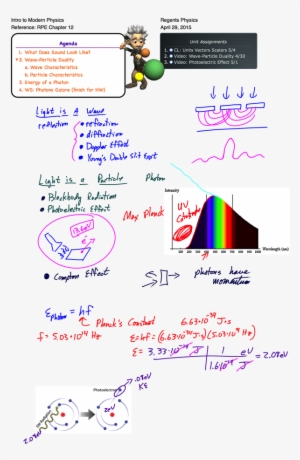 Intro to Modern Physics
Reference: RPE Chapter 12
Regents Physics
April 29, 2015
Agenda
1. What Does Sound Look Like?
2. Wave-Particle Duality
a. Wave Characteristics
b. Particle Characteristics
3. Energy of a Photon
4. WS: Photons Galore (finish for HW)
Unit Assignments
1. CL: Units Vectors Scalars 5/4
2. Video: Wave-Particle Duality 4/30
3. Video: Photoelectric Effect 5/1
Light is A Wave
reflection
• refraction
• diffraction
• Doppler Effect
• Young's Double Slit Expt
Light is a Particle
Photon
• Blackbody Radiation
• Photoelectric Effect
Max Planck
Intensity
UV
Catastrophe
Wavelength (nm)
13.6eV
e-
• Compton Effect
photons have
momentum
Ephoton = hf
Planck's Constant
6.63·10^-34 J·s
f = 5.03·10^14 Hz
E=hf=(6.63·10^-34 J·s)(5.03·10^14 Hz)
E= 3.33·10^-19 J | 1 eV
1.6·10^-19 J
= 2.08eV
Photoelectron
.08eV
KE
2eV
2.08eV